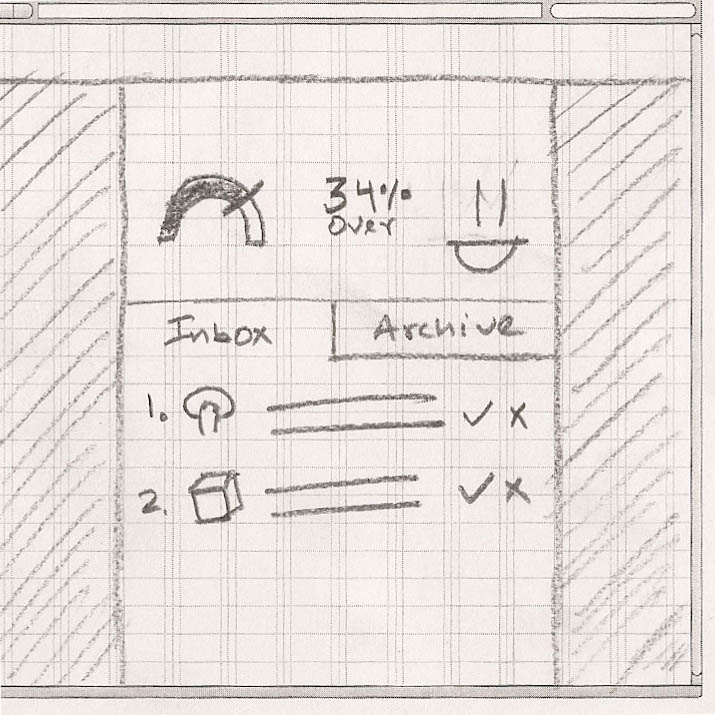 34%
Over
Inbox
Archive
1.
2.